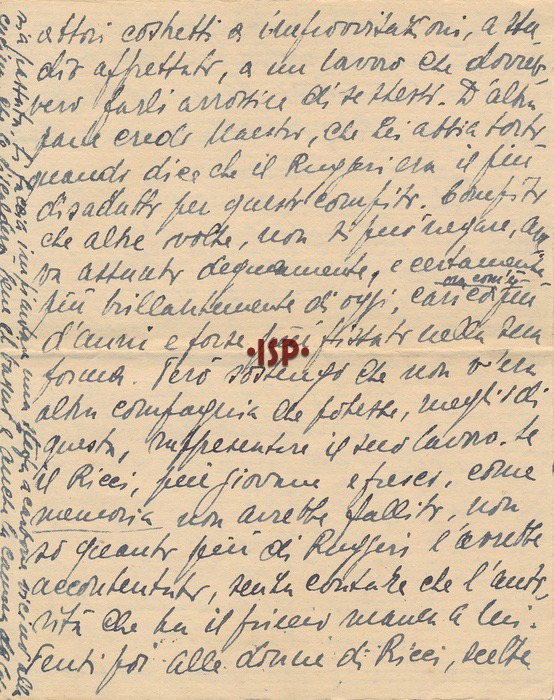 attori costretti a improvvisazioni, a stu
dio affrettato, a un lavoro che dovreb,
bero farli arrossire di se stessi. D'altra
parte credo Maestro, che Lei abbia torto
quando dice che il Ruggeri era il più
disadatto per questo compito. Compito
che altre volte, non si può negare, ave
va attuato degnamente, e certamente
più brillantemente di oggi, ora com'è carico più
d'anni e forse più fissato nella sua
forma. Però sostengo che non v'era
altra compagnia che potesse, meglio di
questa, rappresentare il suo lavoro. Se
il Ricci, più giovane e fresco, come
memoria non avrebbe fallito, non
so quanto più di Ruggeri l'avrebbe
accontentato, senza contare che l'auto,
rità che ha il primo manca a lui.
Tenti poi alle donne di Ricci, scelte
ISP
vicino alla